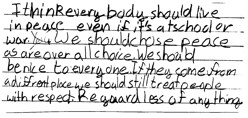 I think every body should live
in peace even if it's at school or
war. We should chose peace
as are over all choice. We should
be nice to every one. If they come from
a different place we should still treat people
with respect. Reguard less of any thing